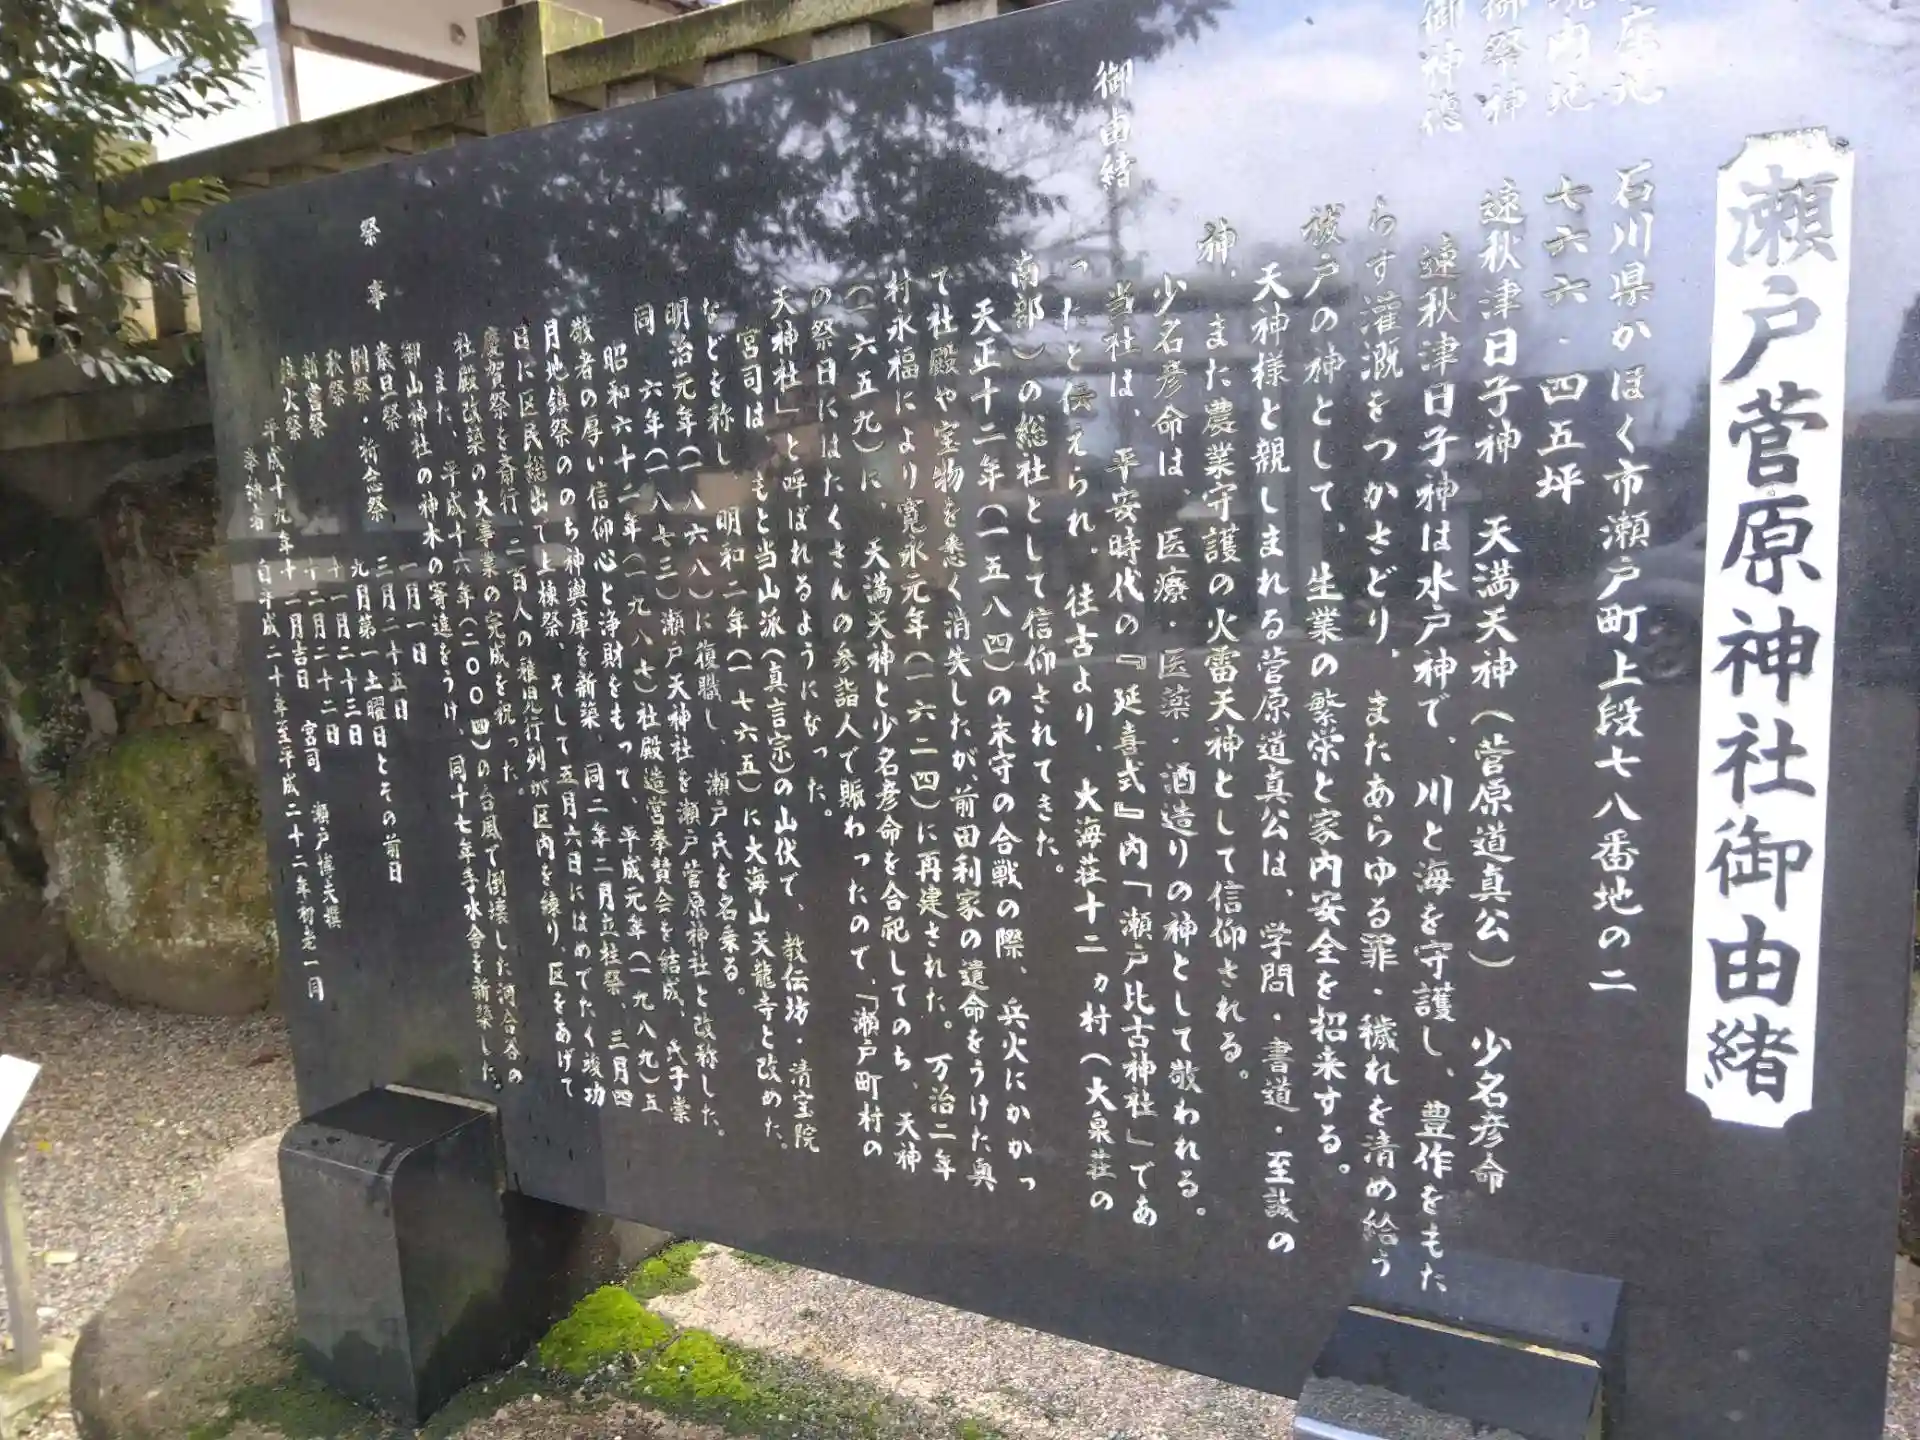 瀬戸菅原神社御由緒
石川県かほく市瀬戸町上段七八番地の二
境内地 七六六・四五坪
御祭神 速秋津日子神 天満天神（菅原道真公） 少名彦命
御神徳 速秋津日子神は水戸神で、川と海を守護し、豊作をもた
らす灌漑をつかさどり、またあらゆる罪・穢れを清め給う
祓戸の神として、生業の繁栄と家内安全を招来する。
天神様と親しまれる菅原道真公は、学問・書道・至誠の
神、また農業守護の火雷天神として信仰される。
少名彦命は、医療・医薬・酒造りの神として敬われる。
御由緒 当社は、平安時代の『延喜式』内「瀬戸比古神社」であ
ったと伝えられ、往古より、大海荘十二ヵ村（大泉荘の
南部）の総社として信仰されてきた。
天正十二年（一五八四）の末守の合戦の際、兵火にかかっ
て社殿や宝物を悉く消失したが、前田利家の遺命をうけた奥
村永福により寛永元年（一六二四）に再建された。万治二年
（一六五九）に、天満天神と少名彦命を合祀してのち、天神
の祭日にはたくさんの参詣人で賑わったので、「瀬戸町村の
天神社」と呼ばれるようになった。
宮司は、もと当山派（真言宗）の山伏で、教伝坊・清宝院
などを称し、明和二年（一七六五）に大海山天龍寺と改めた。
明治元年（一八六八）に復職し、瀬戸氏を名乗る。
同 六年（一八七三）瀬戸天神社を瀬戸菅原神社と改称した。
昭和六十二年（一九八七）社殿造営奉賛会を結成、氏子崇
敬者の厚い信仰心と浄財をもって、平成元年（一九八九）五
月地鎮祭ののち神輿庫を新築、同二年二月立柱祭、三月四
日に区民総出で上棟祭、そして五月六日にはめでたく竣功
慶賀祭を斎行、二百人の稚児行列が区内を練り、区をあげて
社殿改築の大事業の完成を祝った。
また、平成十六年（二〇〇四）の台風で倒壊した河合谷の
御山神社の神木の寄進をうけ、同十七年手水舎を新築した。
祭事 歳旦祭 一月一日
例祭・祈念祭 三月二十五日
秋祭 九月第一土曜日とその前日
新嘗祭 十一月二十三日
鎮火祭 十二月二十二日
平成十九年十二月吉日 宮司 瀬戸博夫撰
奉納者 自平成二十年至平成二十二年初老一同